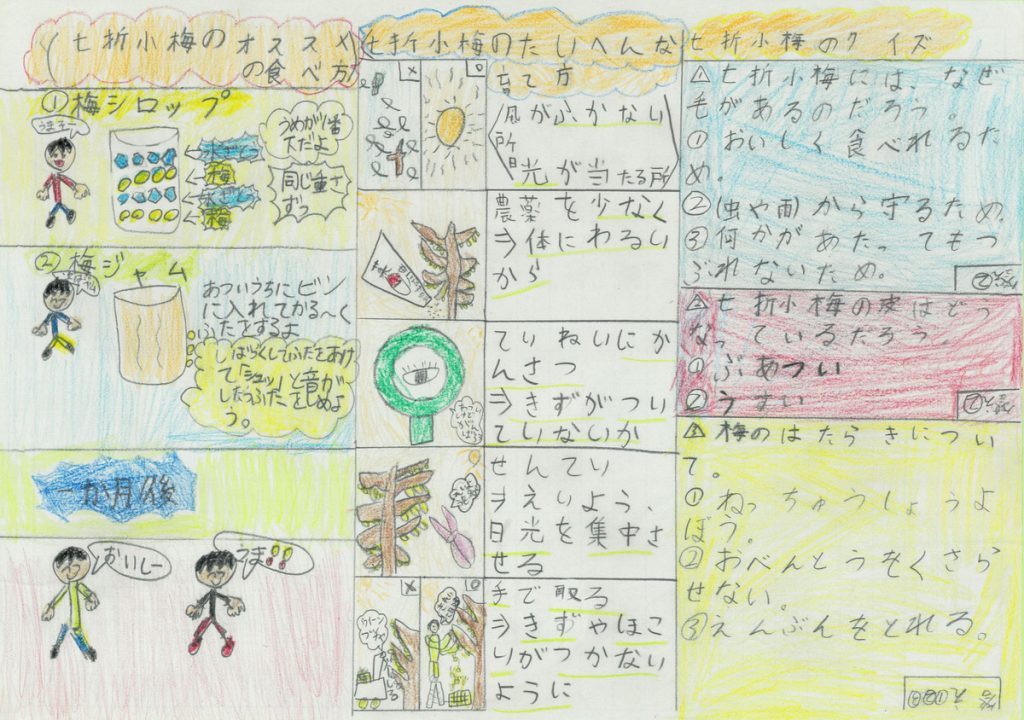 七折小梅のオススメ
の食べ方
①梅シロップ
うまそー
うめが1番
大だよ
氷ざとう
梅
氷ざとう
梅
同じ重さ
ずつ
②梅ジャム
あついうちにビン
に入れてかる〜く
ふたをするよ
しばらくしてふたをあけ
て「シュッ」と音が
したらふたをしめよ
う。
一か月後
おいしー
うま!!
七折小梅のたいへんな
育て方
風がふかない
所
日光が当たる所
農薬を少なく
⇒体にわるい
から
ていねいにか
んさつ
⇒きずがつい
ていないか
せんてい
⇒えいよう、
日光を集中さ
せる
手で取る
⇒きずやほこ
りがつかない
ように
七折小梅のクイズ
七折小梅には、なぜ
毛があるのだろう。
①おいしく食べれるた
め。
②(虫や雨)から守るため。
③何かがあたってもつ
ぶれないため。
答え②
七折小梅の皮はどう
なっているだろう。
①ぶあつい
②うすい
答え②
梅のはたらきについ
て。
①ねっちゅうしょうよ
ぼう。
②おべんとうをくさら
せない。
③えんぶんをとれる。
答え①②③